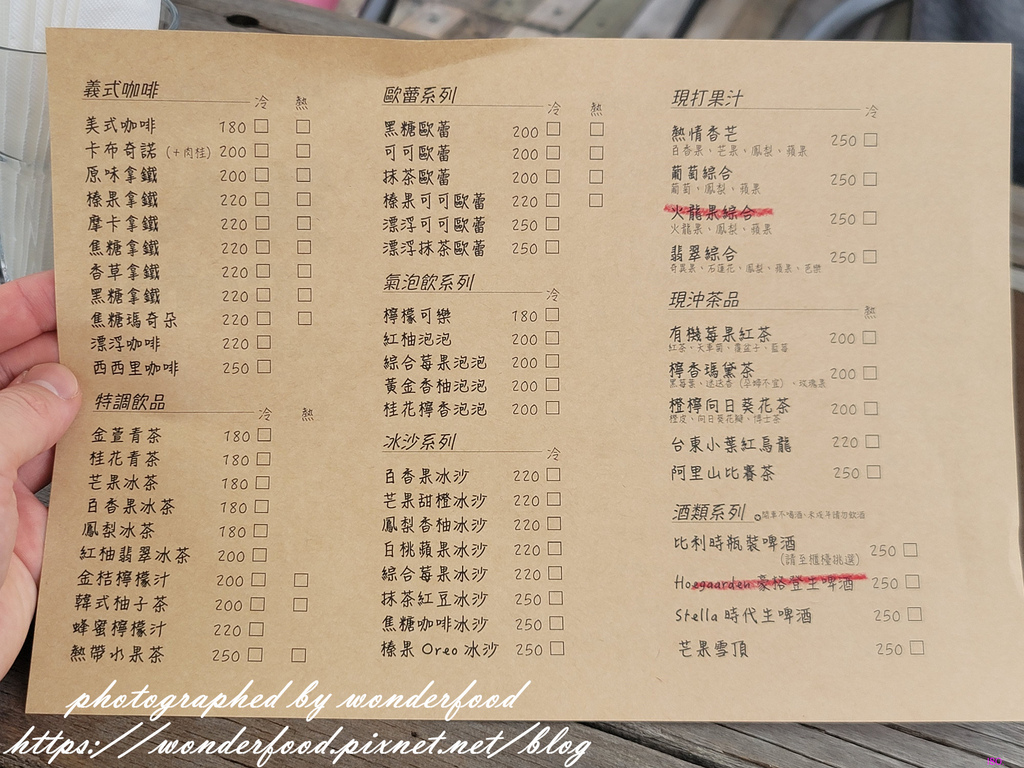 義式咖啡 冷 熱
美式咖啡 180 □ □
卡布奇諾 (+肉桂) 200 □ □
原味拿鐵 200 □ □
榛果拿鐵 220 □ □
摩卡拿鐵 220 □ □
焦糖拿鐵 220 □ □
香草拿鐵 220 □ □
黑糖拿鐵 220 □ □
焦糖瑪奇朵 220 □ □
漂浮咖啡 220 □
西西里咖啡 250 □
特調飲品 冷 熱
金萱青茶 180 □
桂花青茶 180 □
芒果冰茶 180 □
百香果冰茶 180 □
鳳梨冰茶 180 □
紅柚翡翠冰茶 200 □
金桔檸檬汁 200 □ □
韓式柚子茶 200 □ □
蜂蜜檸檬汁 220 □
熱帶水果茶 250 □ □
歐蕾系列 冷 熱
黑糖歐蕾 200 □ □
可可歐蕾 200 □ □
抹茶歐蕾 200 □ □
榛果可可歐蕾 220 □ □
漂浮可可歐蕾 250 □
漂浮抹茶歐蕾 250 □
氣泡飲系列 冷
檸檬可樂 180 □
紅柚泡泡 200 □
綜合莓果泡泡 200 □
黃金香柚泡泡 200 □
桂花檸香泡泡 200 □
冰沙系列 冷
百香果冰沙 220 □
芒果甜橙冰沙 220 □
鳳梨香柚冰沙 220 □
白桃蘋果冰沙 220 □
綜合莓果冰沙 220 □
抹茶紅豆冰沙 250 □
焦糖咖啡冰沙 250 □
榛果 Oreo 冰沙 250 □
現打果汁 冷
熱情香芒 250 □
百香果、芒果、鳳梨、蘋果
葡萄綜合 250 □
葡萄、鳳梨、蘋果
火龍果綜合 250 □
火龍果、鳳梨、蘋果
翡翠綜合 250 □
奇異果、石蓮花、鳳梨、蘋果、芭樂
現沖茶品 熱
有機莓果紅茶 200 □
紅茶、矢車菊、覆盆子、藍莓
檸香瑪黛茶 200 □
黑莓葉、迷迭香（孕婦不宜）、玫瑰果
橙檸向日葵花茶 200 □
橙皮、向日葵花瓣、博士茶
台東小葉紅烏龍 220 □
阿里山比賽茶 250 □
酒類系列 開車不喝酒、未成年請勿飲酒
比利時瓶裝啤酒 250 □
(請至櫃檯挑選)
Hoegaarden 豪格登生啤酒 250 □
Stella 時代生啤酒 250 □
芒果雪頂 250 □
photographed by wonderfood
https://wonderfood.pixnet.net/blog